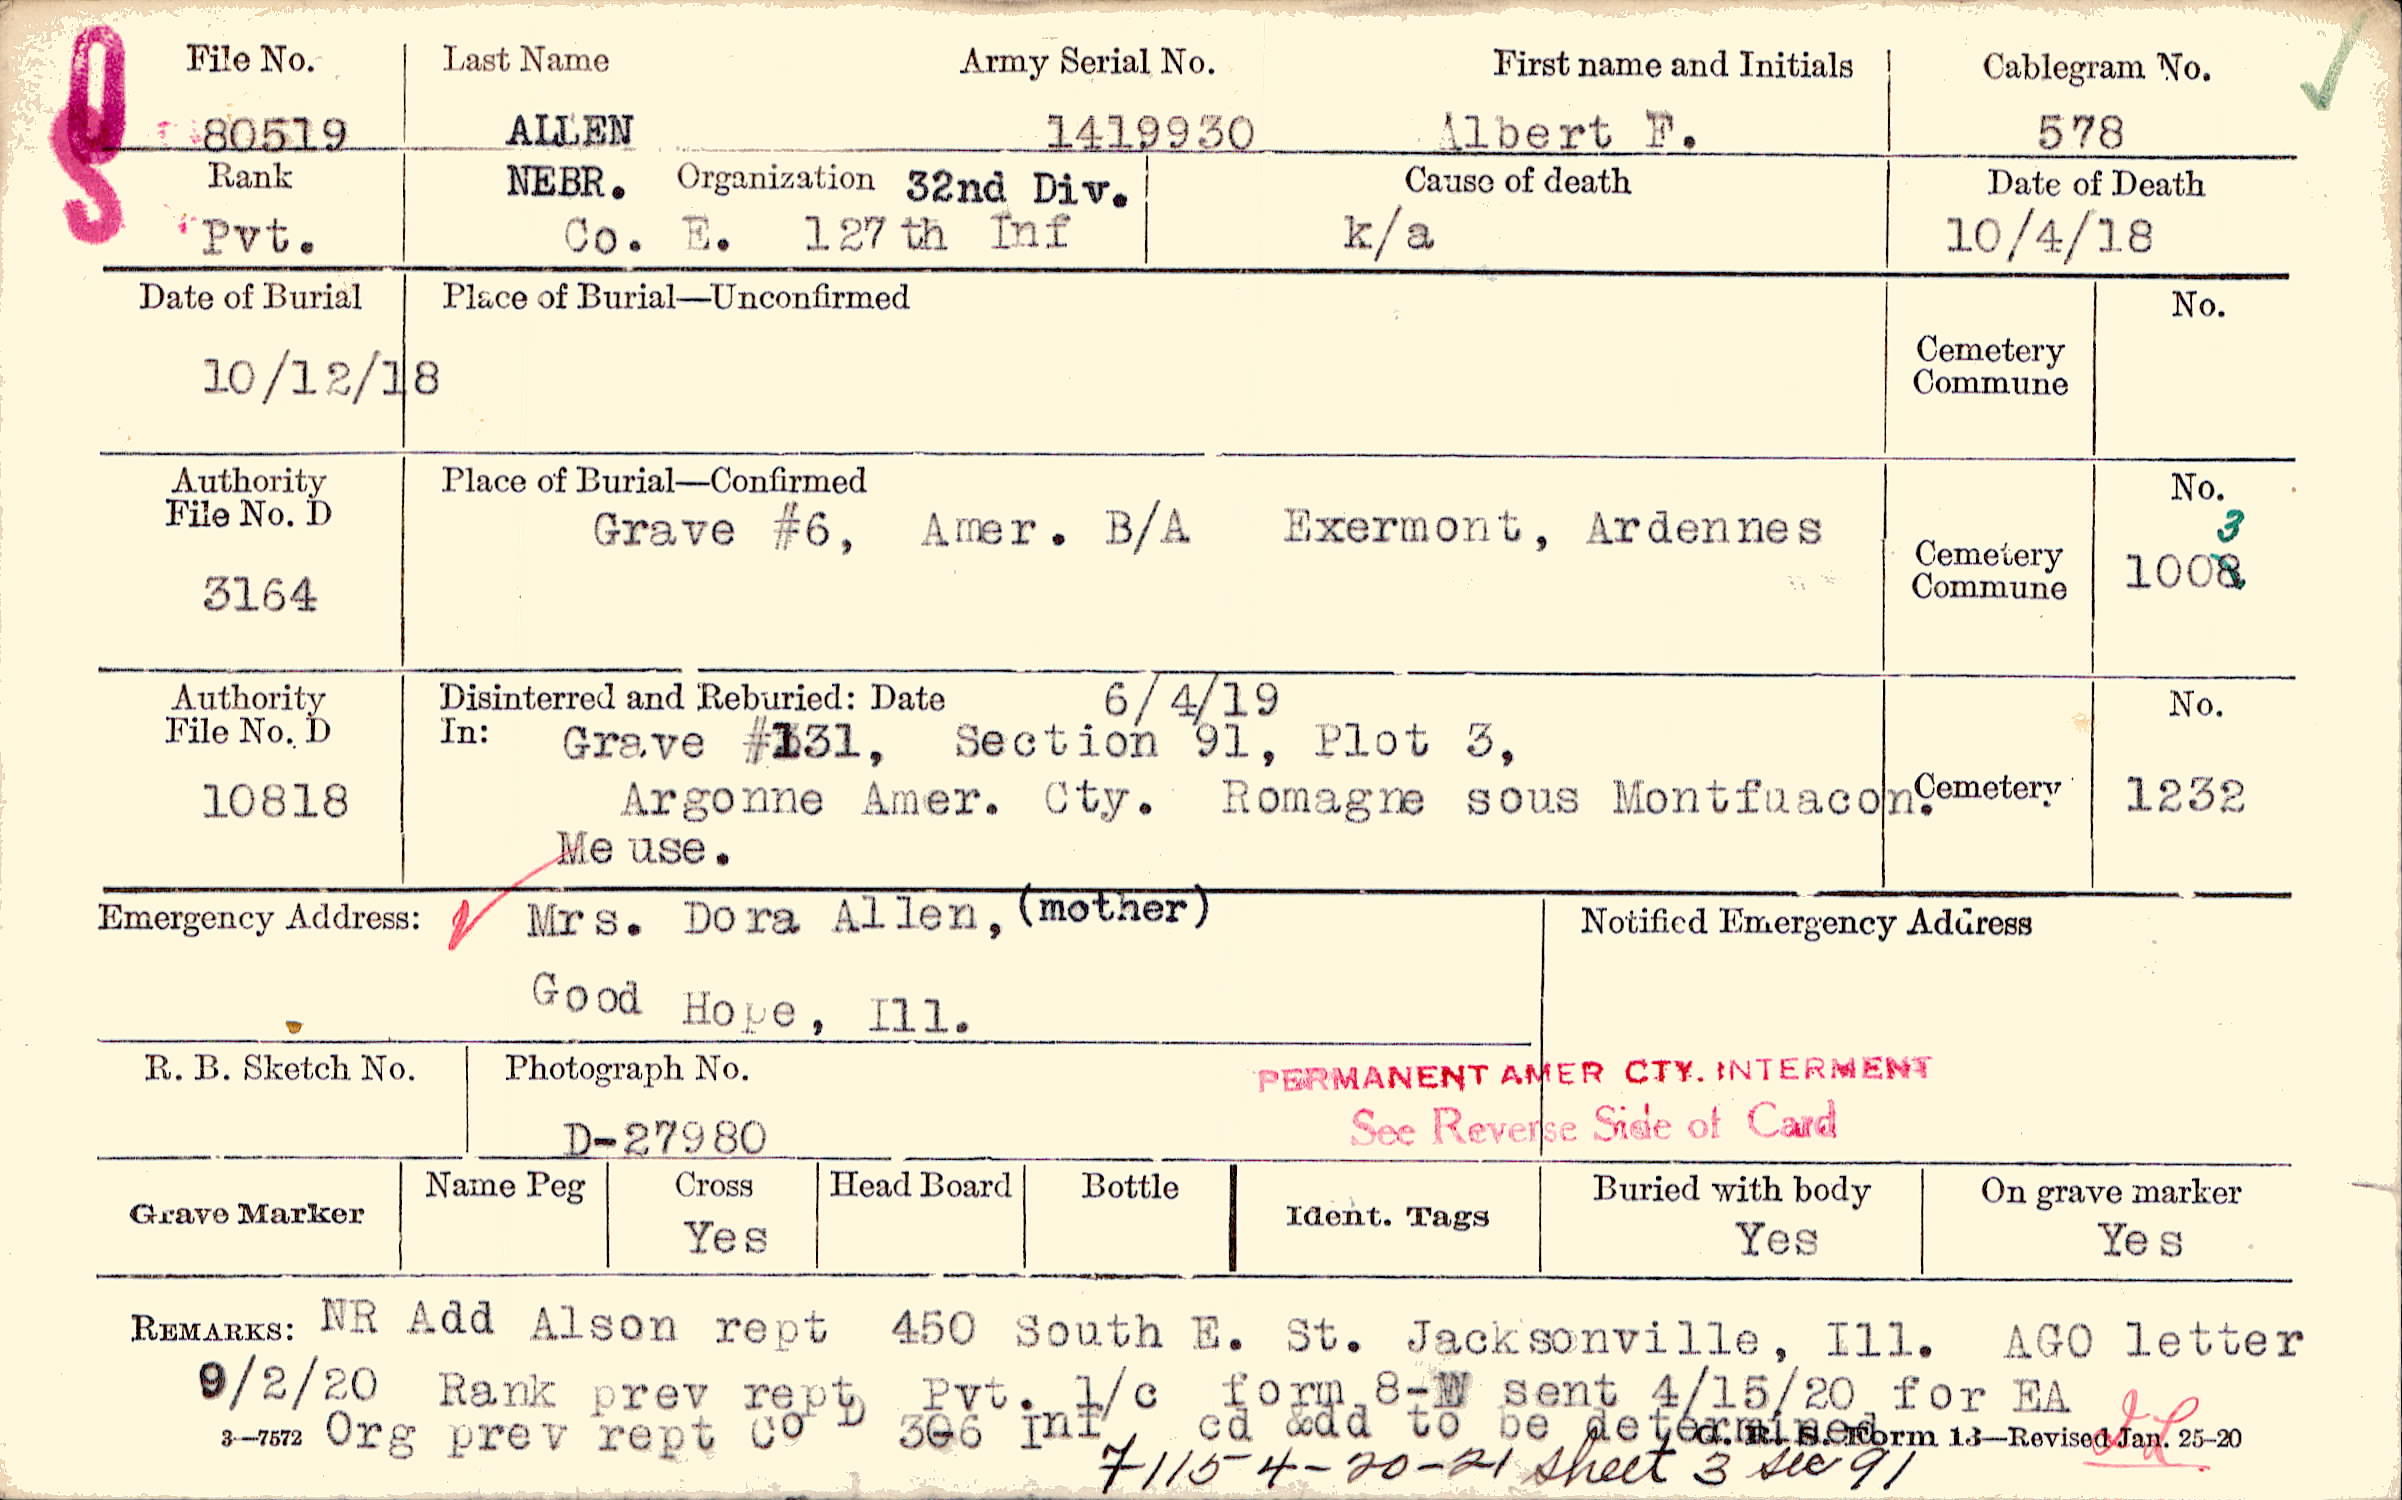 File No. Last Name Army Serial No. First name and Initials Cablegram No.
80519 ALLEN 1419930 Albert F. 578
Rank NEBR. Organization 32nd Div. Cause of death Date of Death
Pvt. Co. E. 127th Inf k/a 10/4/18
Date of Burial Place of Burial—Unconfirmed No.
10/12/18 Cemetery
Commune
Authority Place of Burial—Confirmed No.
File No. D Grave #6, Amer. B/A Exermont, Ardennes 3
Cemetery 1008
3164 Commune
Authority Disinterred and Reburied: Date 6/4/19 No.
File No. D In: Grave #131, Section 91, Plot 3,
10818 Argonne Amer. Cty. Romagne sous Montfuacon. Cemetery 1232
Meuse.
Emergency Address: Mrs. Dora Allen, (mother) Notified Emergency Address
Good Hope, Ill.
R. B. Sketch No. Photograph No. PERMANENT AMER CTY. INTERMENT
D-27980 See Reverse Side of Card
Grave Marker Name Peg Cross Head Board Bottle Ident. Tags Buried with body On grave marker
Yes Yes Yes
REMARKS: NR Add Alson rept 450 South E. St. Jacksonville, Ill. AGO letter
9/2/20 Rank prev rept Pvt. 1/c form 8-W sent 4/15/20 for EA
3—7572 Org prev rept Co D 306 Inf cd add to be determined G. R. S. Form 13—Revised Jan. 25-20
7115 4-20-21 sheet 3 sec 91